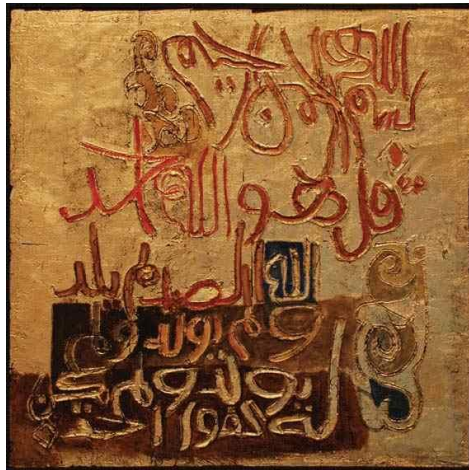 بسم الله الرحمن الرحيم
قل هو الله احد
الله الصمد لم يلد
ولم يولد و
كفوا احد